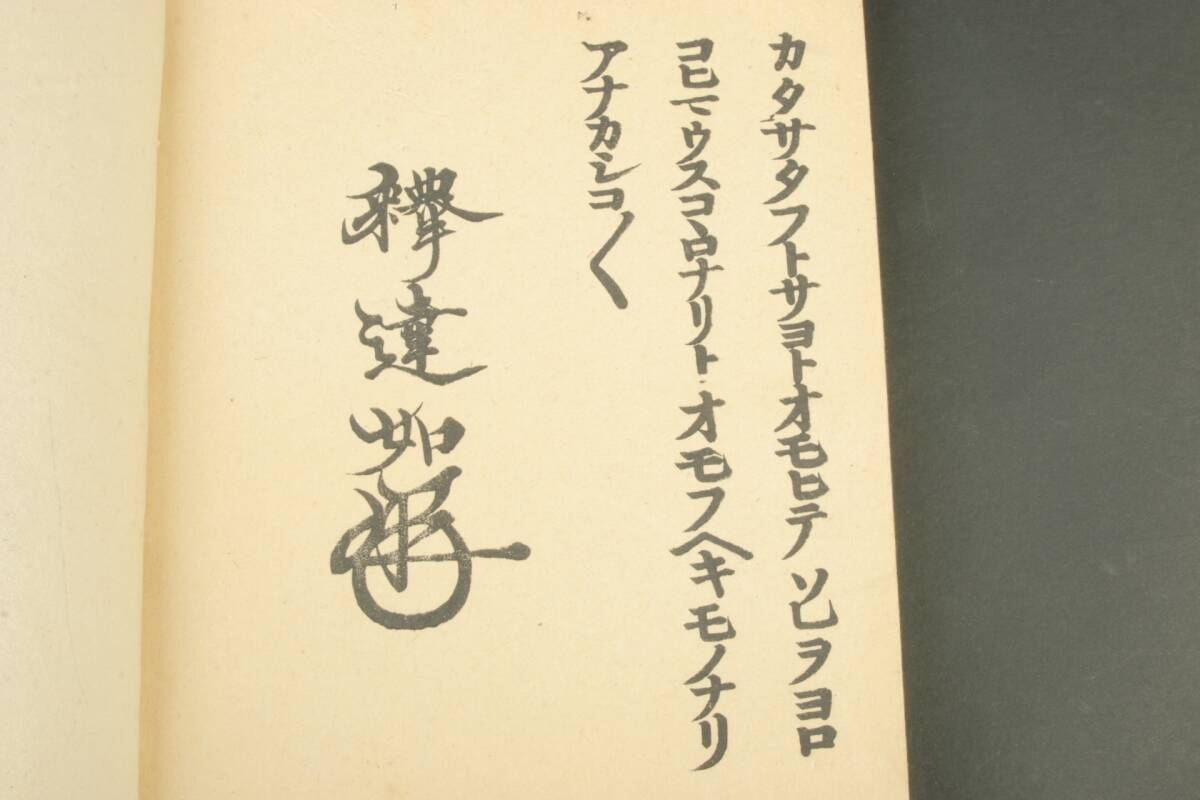 カタサタフトサヨトオモヒテソレヲヨロ
コヒマウスコヽロナリトオモフヘキモノナリ
アナカシコ〳〵
釋達如